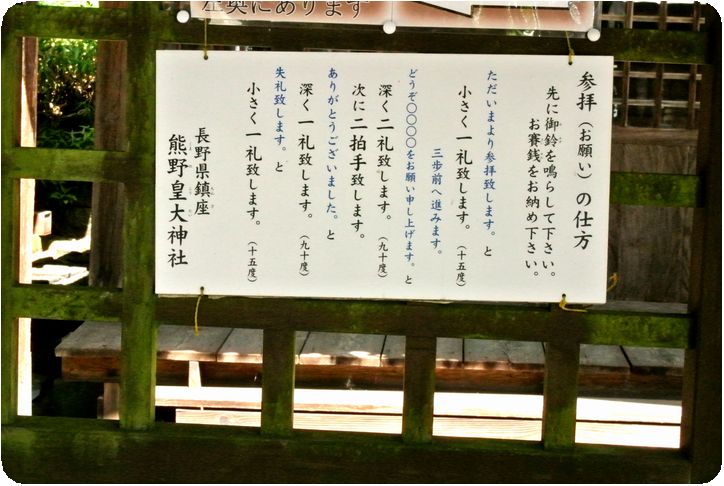 左奥にあります
参拝（お願い）の仕方
先に御鈴を鳴らして下さい。
お賽銭をお納め下さい。
ただいまより参拝致します。と
小さく一礼致します。（十五度）
三歩前へ進みます。
どうぞ〇〇〇〇をお願い申し上げます。と
深く二礼致します。（九十度）
次に二拍手致します。
ありがとうございました。と
深く一礼致します。（九十度）
失礼致します。と
小さく一礼致します。（十五度）
長野県鎮座
熊野皇大神社